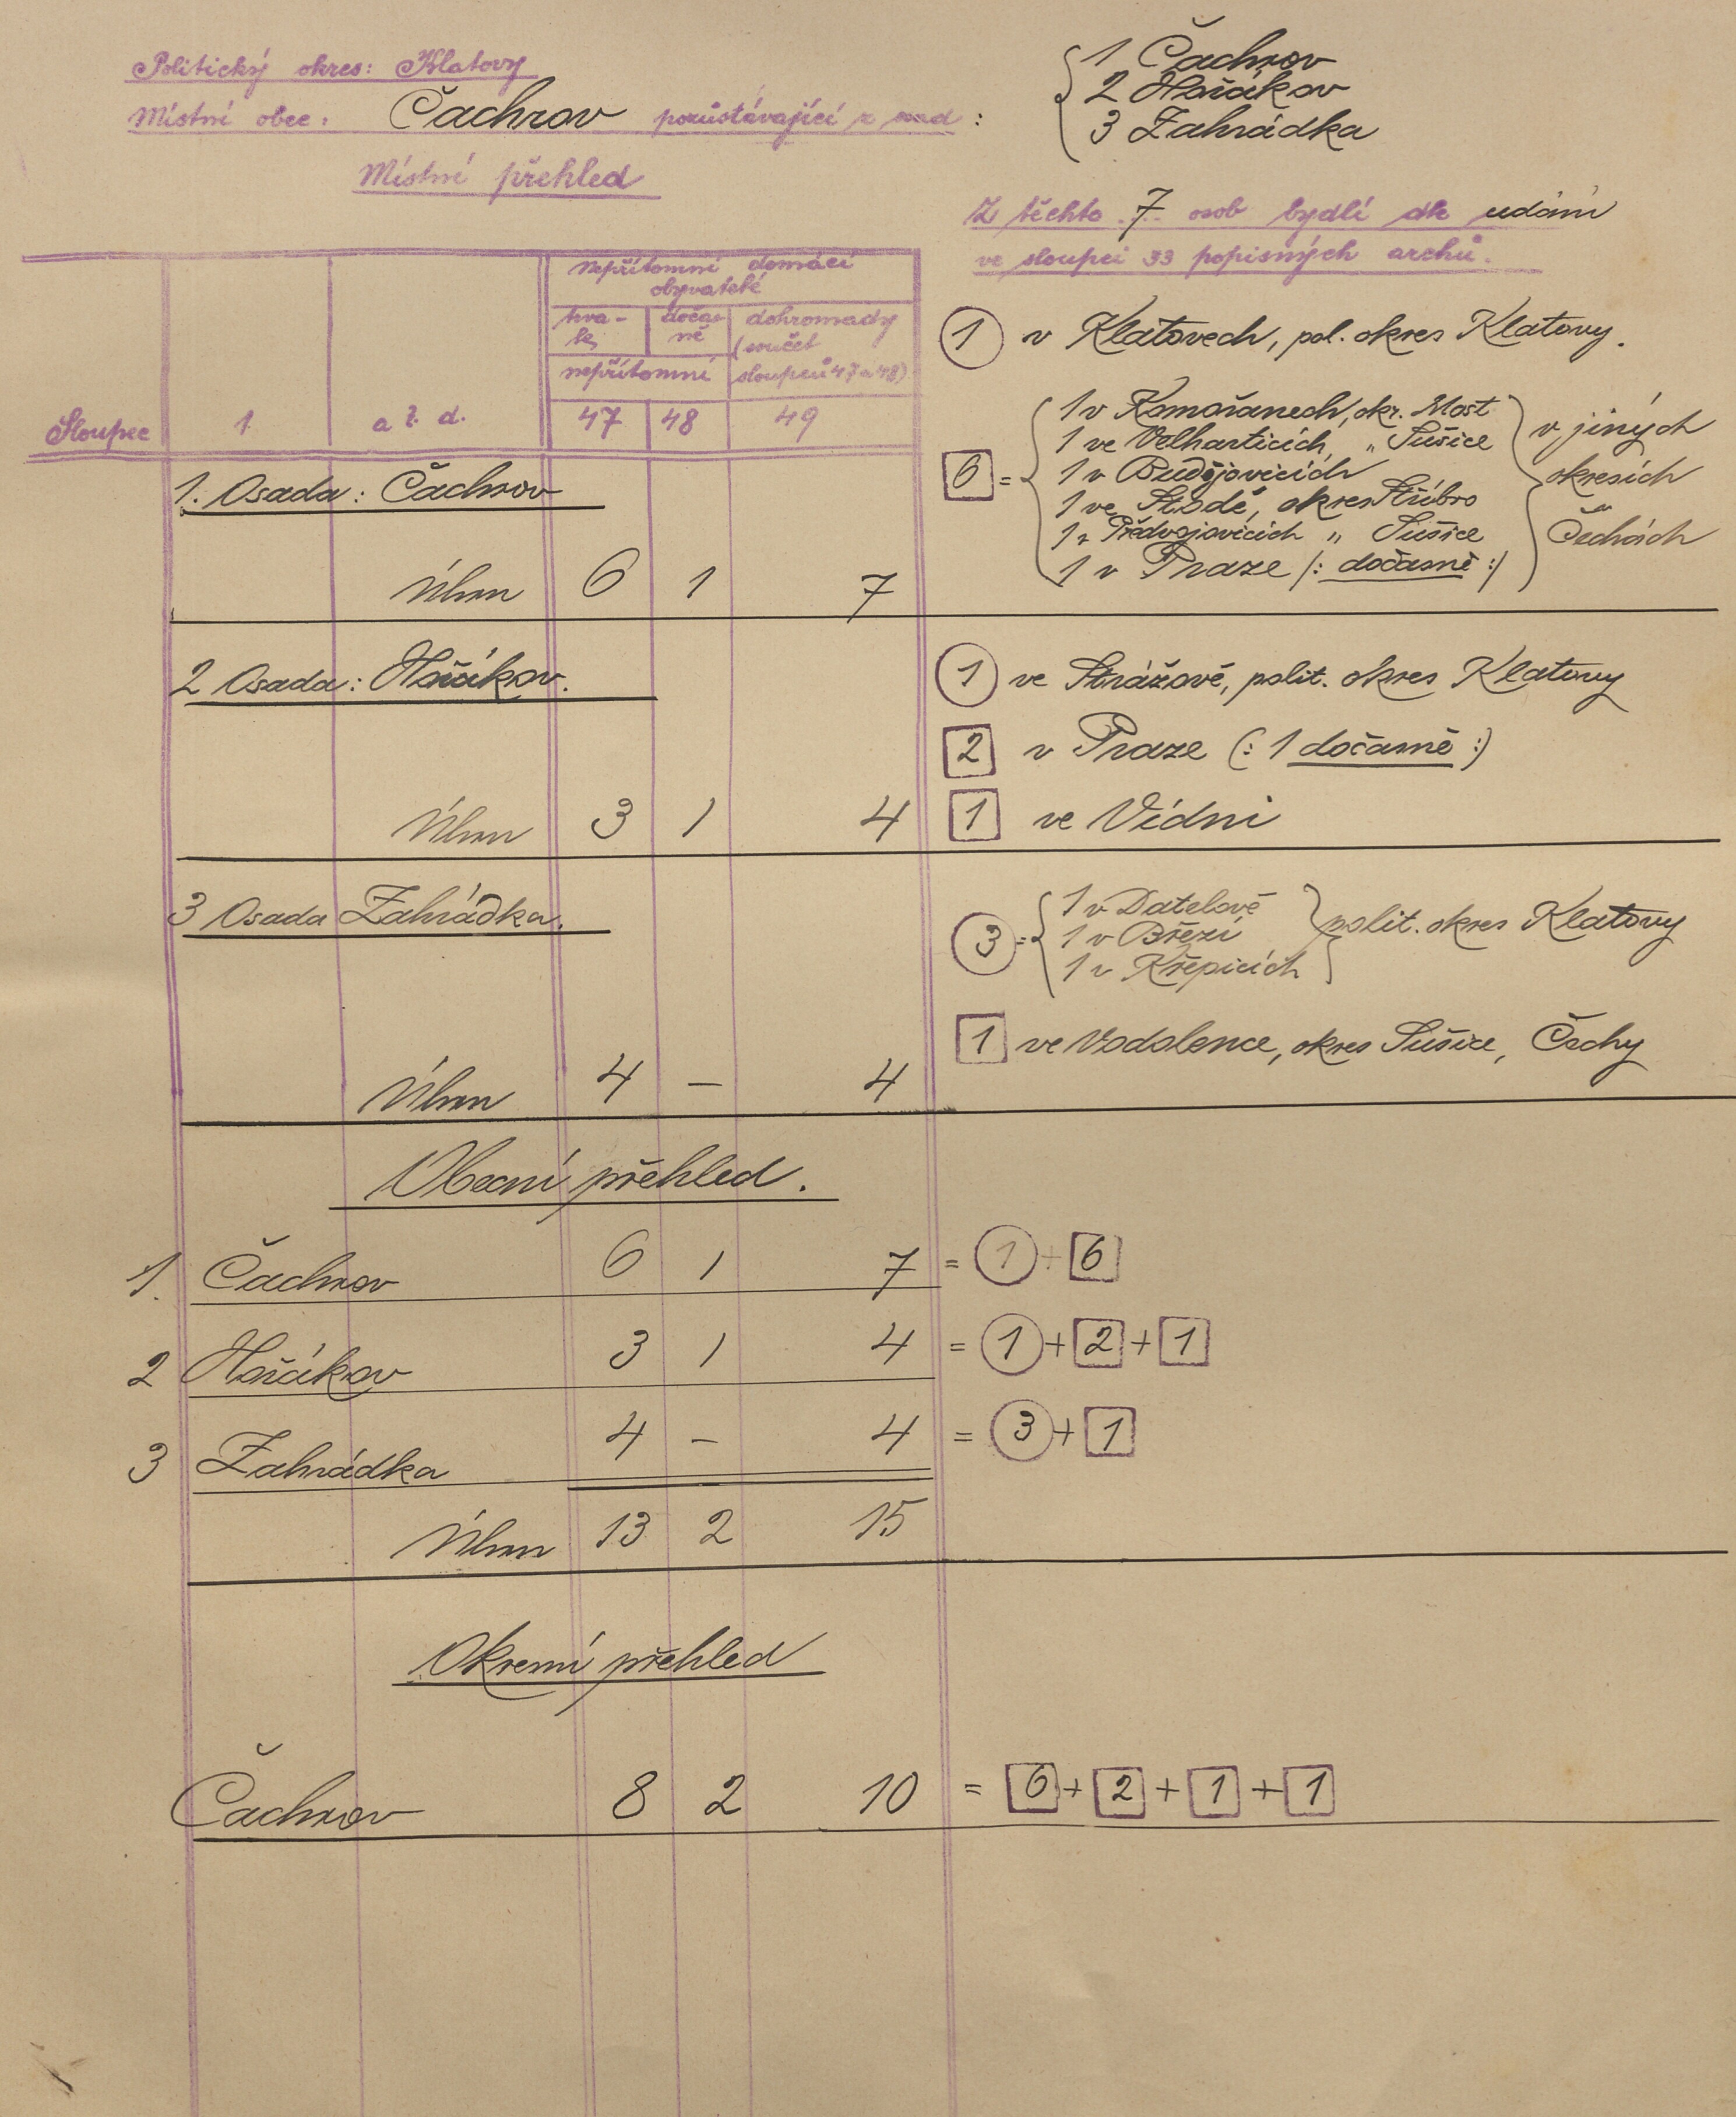 Politický okres: Klatovy
Místní obec: Čachrov pozůstávající z osad:
1 Čachrov
2 Hořákov
3 Zahrádka
Místní přehled
Z těchto 7 osob bydlí dle udání
ve sloupci 33 popisných archů.
nepřítomní domácí
obyvatelé
trva-
le
dočas-
ně
dohromady
(součet
nepřítomní
sloupců 47 a 48)
Sloupec 1 a t. d. 47 48 49
1 v Klatovech, pol. okres Klatovy.
1. Osada: Čachrov
6 =
1 v Komořanech, okr. Most
1 ve Velharticích, „ Sušice
1 v Budějovicích
1 ve Stodě, okres Stříbro
1 v Předvojovicích „ Sušice
1 v Praze /: dočasně :/
v jiných
okresích
Čechách
Úhrn 6 1 7
2 Osada: Hořákov.
1 ve Strážově, polit. okres Klatovy
2 v Praze (: 1 dočasně :)
Úhrn 3 1 4
1 ve Vídni
3 Osada Zahrádka.
3 =
1 v Datelově
1 v Březí
1 v Křepicích
polit. okres Klatovy
1 ve Vodolence, okres Sušice, Čechy
Úhrn 4 – 4
Obecní přehled.
1. Čachrov 6 1 7 = 1 + 6
2 Hořákov 3 1 4 = 1 + 2 + 1
3 Zahrádka 4 – 4 = 3 + 1
Úhrn 13 2 15
Okresní přehled
Čachrov 8 2 10 = 6 + 2 + 1 + 1